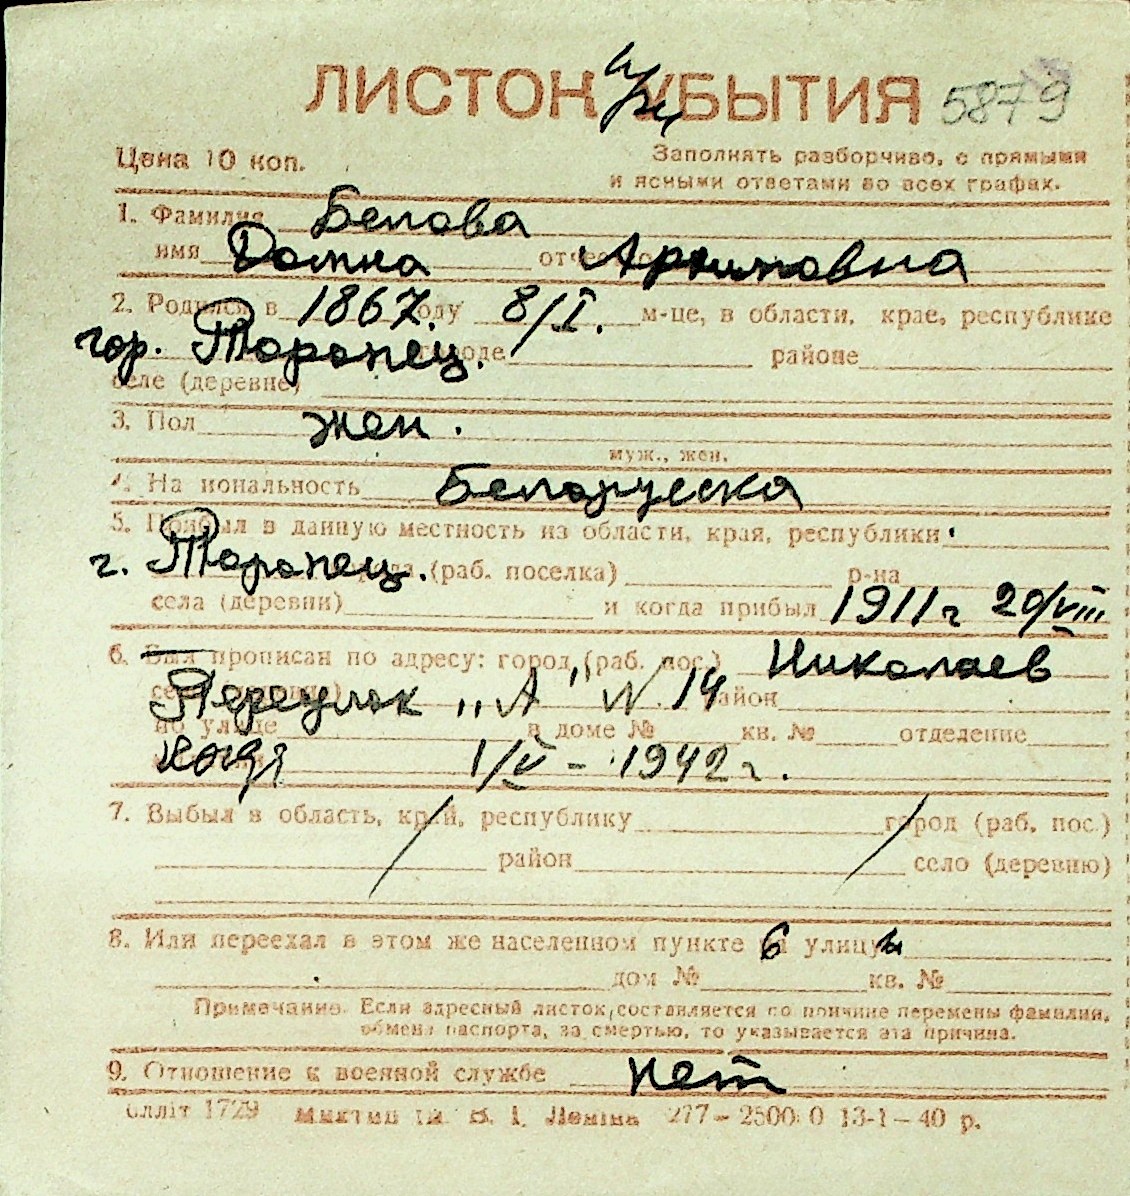 ЛИСТОК УБЫТИЯ 5879
Цена 10 коп. Заполнять разборчиво, с прямыми
и ясными ответами во всех графах.
1. Фамилия Белова
имя Домна отчество Архиповна
2. Родился в 1867. году 8/I. м-це, в области, крае, республике
гор. Торопец. городе районе
селе (деревне)
3. Пол жен.
муж., жен.
4. Национальность Белорусска
5. Прибыл в данную местность из области, края, республики
г. Торопец. города (раб. поселка) р-на
села (деревни) и когда прибыл 1911 г 20/VIII
6. Был прописан по адресу: город (раб. пос.) Николаев
Переулок "А" N 14 район
по улице в доме № кв. № отделение
1/V - 1942 г.
7. Выбыл в область, край, республику город (раб. пос.)
район село (деревню)
8. Или переехал в этом же населенном пункте улицу
дом № кв. №
Примечание. Если адресный листок составляется по причине перемены фамилии,
обмена паспорта, за смертью, то указывается эта причина.
9. Отношение к военной службе нет
1729 В. І. Леніна 277 — 2500 0 13-1 — 40 р.